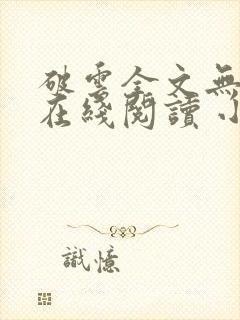 破雲全文無
在綫閱讀 小
識憶